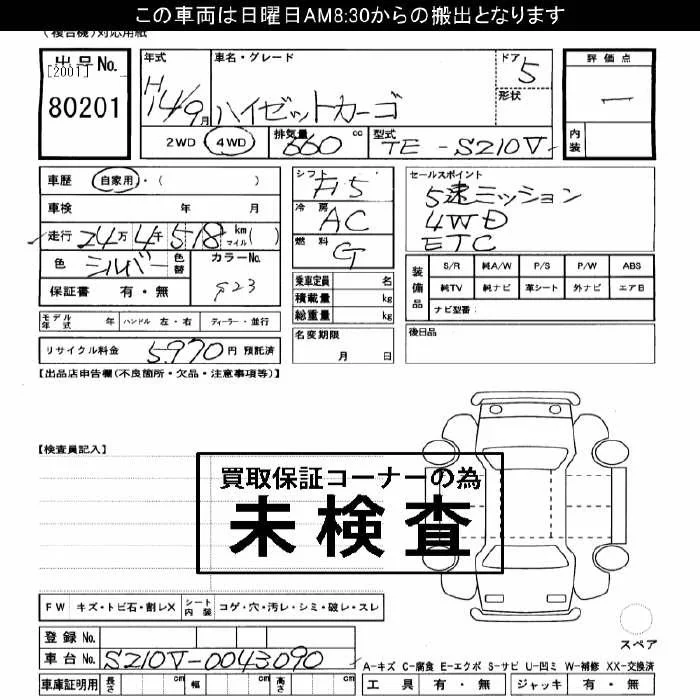 この車両は日曜日AM8:30からの搬出となります
(複合機)対応用紙
出品No.
[2001]
80201
年式 車名・グレード ドア 5
H14/9月 ハイゼットカーゴ 形状
2WD 4WD 排気量 660 cc 型式 TE-S210V
評価点
一
内装
車歴 自家用・( )
車検 年 月
走行 24万4千518 kmマイル( )
色 シルバー 色替 カラーNo.
保証書 有・無 S23
シフト F15
冷房 AC
燃料 G
乗車定員 名
積載量 kg
総重量 kg
セールスポイント
5速ミッション
4WD
ETC
装備品 S/R 純A/W P/S P/W ABS
純TV 純ナビ 革シート 外ナビ エアB
ナビ型番:
モデル年式 年 ハンドル 左・右 ディーラー・並行
名変期限
月 日
後日品
リサイクル料金 5,970円 預託済
【出品店申告欄(不良箇所・欠品・注意事項等)】
【検査員記入】
買取保証コーナーの為
未検査
FW キズ・トビ石・割レX シート内装 コゲ・穴・汚レ・シミ・破レ・スレ
スペア
登録No.
車台No. S210V-0043090
A-キズ C-腐食 E-エクボ S-サビ U-凹ミ W-補修 XX-交換済
車庫証明用 長さ cm 幅 cm 高さ cm
工具 有・無 ジャッキ 有・無